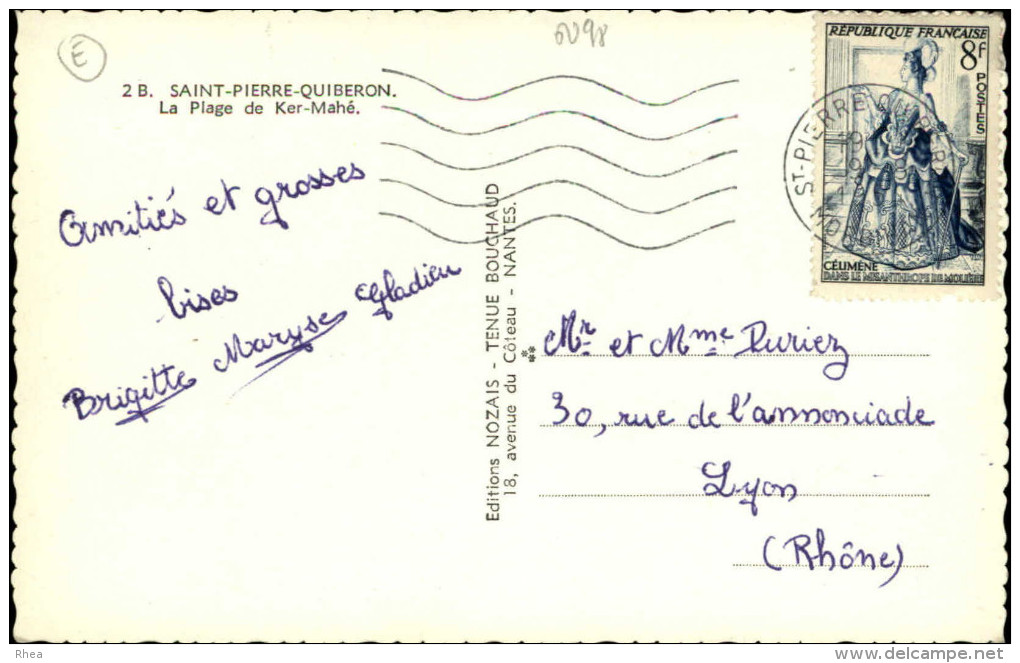 E
6098
2 B. SAINT-PIERRE-QUIBERON.
La Plage de Ker-Mahé.
Amitiés et grosses
bises
Brigitte Maryse Gladieu
Editions NOZAIS - TENUE BOUCHAUD
18, avenue du Côteau - NANTES.
RÉPUBLIQUE FRANÇAISE
8f
POSTES
CÉLIMÈNE
DANS LE MISANTHROPE DE MOLIÈRE
ST-PIERRE QUIBERON
Mr et Mme Duriez
30, rue de l'annonciade
Lyon
(Rhône)
Rhea
delcampe.net